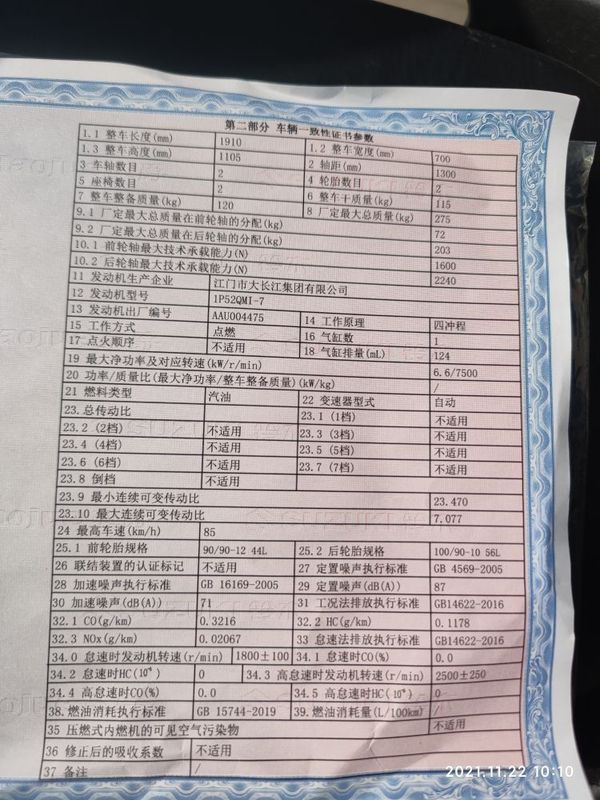 第二部分 车辆一致性证书参数
1.1 整车长度(mm) 1910 1.2 整车宽度(mm) 700
1.3 整车高度(mm) 1105 2 轴距(mm) 1300
3 车轴数目 2 4 轮胎数目 2
5 座椅数目 2 6 整车干质量(kg) 115
7 整车整备质量(kg) 120 8 厂定最大总质量(kg) 275
9.1 厂定最大总质量在前轮轴的分配(kg) 72
9.2 厂定最大总质量在后轮轴的分配(kg) 203
10.1 前轮轴最大技术承载能力(N) 1600
10.2 后轮轴最大技术承载能力(N) 2240
11 发动机生产企业 江门市大长江集团有限公司
12 发动机型号 1P52QMI-7
13 发动机出厂编号 AAU004475 14 工作原理 四冲程
15 工作方式 点燃 16 气缸数 1
17 点火顺序 不适用 18 气缸排量(mL) 124
19 最大净功率及对应转速(kW/r/min) 6.6/7500
20 功率/质量比(最大净功率/整车整备质量)(kW/kg) /
21 燃料类型 汽油 22 变速器型式 自动
23.总传动比 23.1 (1档) 不适用
23.2 (2档) 不适用 23.3 (3档) 不适用
23.4 (4档) 不适用 23.5 (5档) 不适用
23.6 (6档) 不适用 23.7 (7档) 不适用
23.8 倒档 不适用
23.9 最小连续可变传动比 23.470
23.10 最大连续可变传动比 7.077
24 最高车速(km/h) 85
25.1 前轮胎规格 90/90-12 44L 25.2 后轮胎规格 100/90-10 56L
26 联结装置的认证标记 不适用 27 定置噪声执行标准 GB 4569-2005
28 加速噪声执行标准 GB 16169-2005 29 定置噪声(dB(A)) 87
30 加速噪声(dB(A)) 71 31 工况法排放执行标准 GB14622-2016
32.1 CO(g/km) 0.3216 32.2 HC(g/km) 0.1178
32.3 NOx(g/km) 0.02067 33 怠速法排放执行标准 GB14622-2016
34.0 怠速时发动机转速(r/min) 1800±100 34.1 怠速时CO(%) 0.0
34.2 怠速时HC(10⁻⁶) 0 34.3 高怠速时发动机转速(r/min) 2500±250
34.4 高怠速时CO(%) 0.0 34.5 高怠速时HC(10⁻⁶) 0
38.燃油消耗执行标准 GB 15744-2019 39.燃油消耗量(L/100km) /
35 压燃式内燃机的可见空气污染物 不适用
36 修正后的吸收系数 不适用
37 备注 /
2021.11.22 10:10